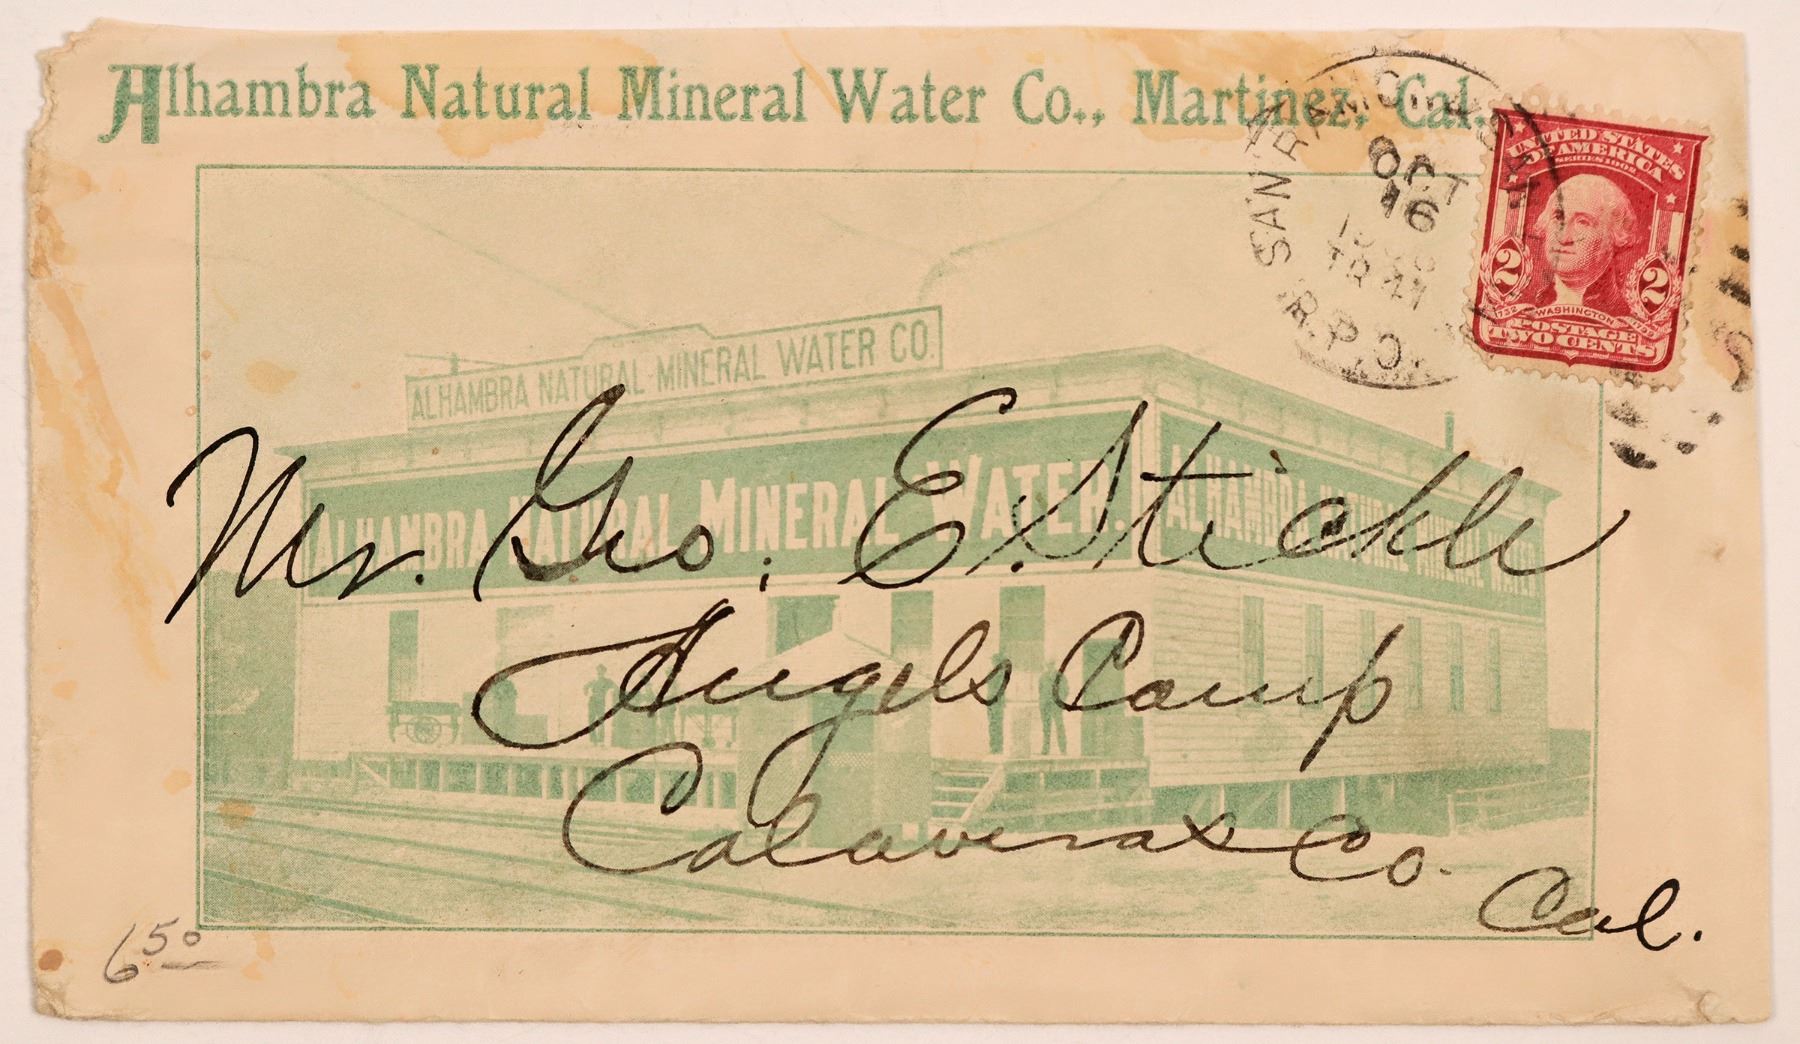 Alhambra Natural Mineral Water Co., Martinez, Cal.
SAN RAMON & SAN
OCT
16
TR 41
R.P.O.
UNITED STATES
OF AMERICA
SERIES 1902
2 2
1732 WASHINGTON 1799
POSTAGE
TWO CENTS
ALHAMBRA NATURAL MINERAL WATER CO.
ALHAMBRA NATURAL MINERAL WATER. ALHAMBRA NATURAL MINERAL WATER
Mr. Geo. E. Stickle
Angels Camp
Calaveras Co.
Cal.
6 50